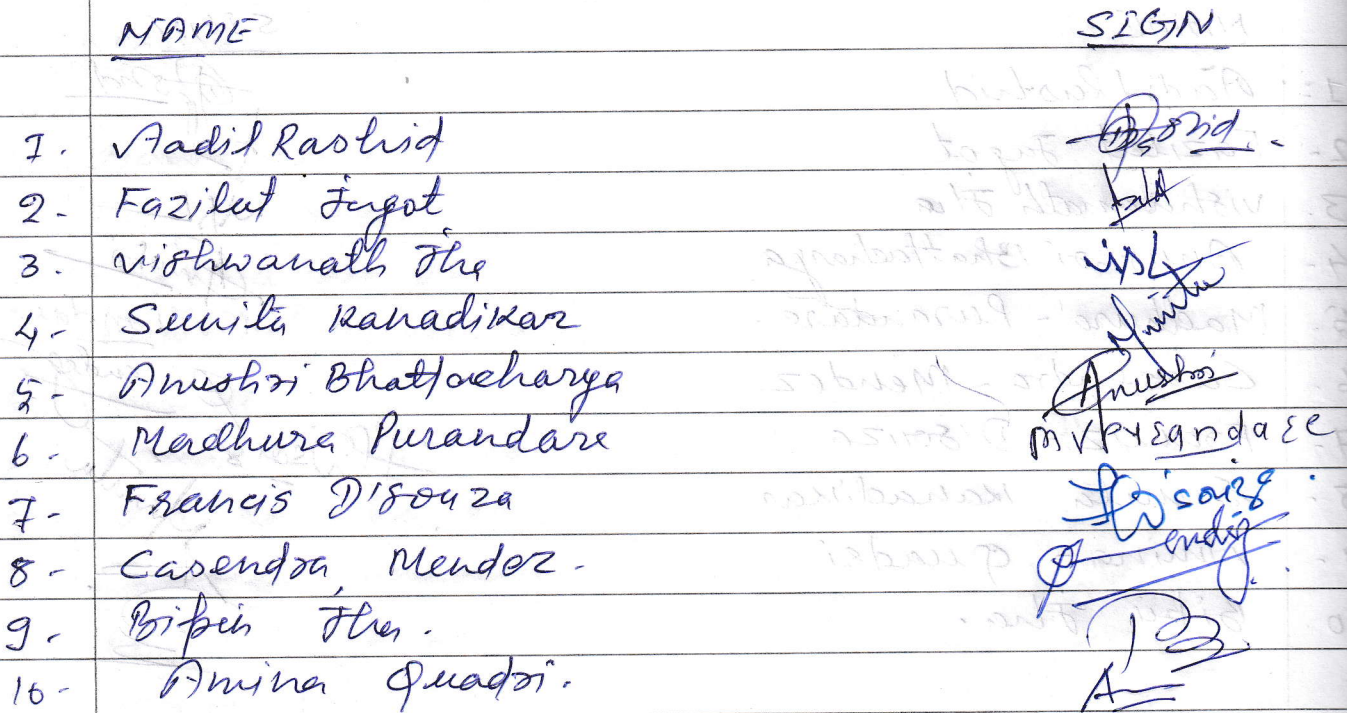 NAME SIGN
1. Aadil Rashid
2- Fazilat Jugot
3. vishwanath Jha
4- Sunita Kanadikar
5- Anushri Bhattacharya Anushri
6- Madhura Purandare M V Purandare
7- Francis D'Souza
8- Casendra Mendez.
9- Bipin Jha.
10- Amina Quadri.